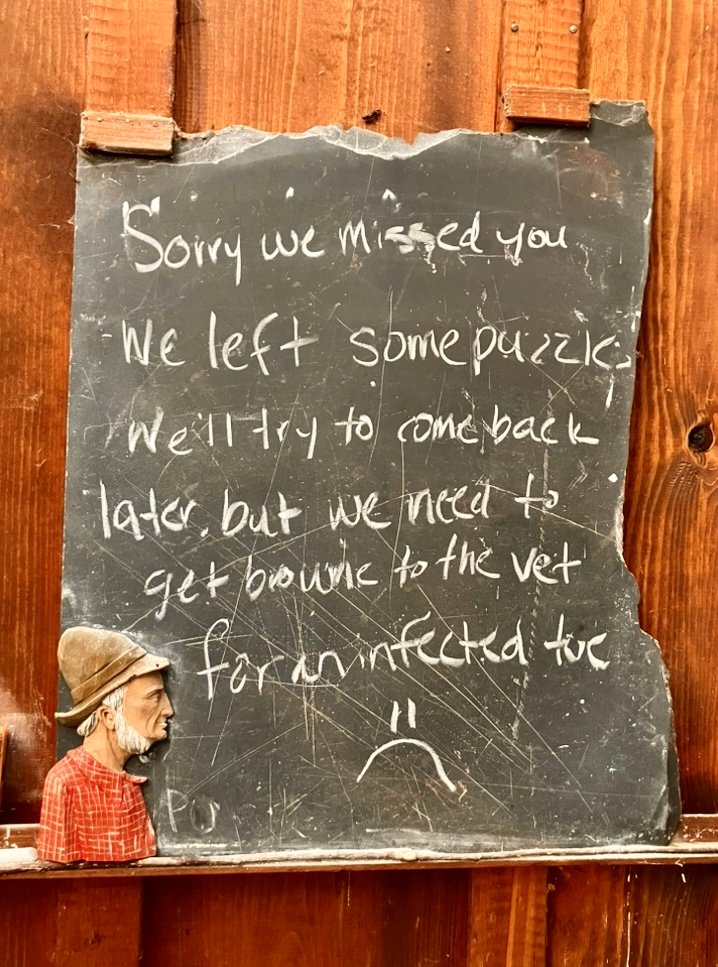 Sorry we missed you
We left some puzzles
We'll try to come back
later, but we need to
get brownie to the vet
for an infected toe
PU